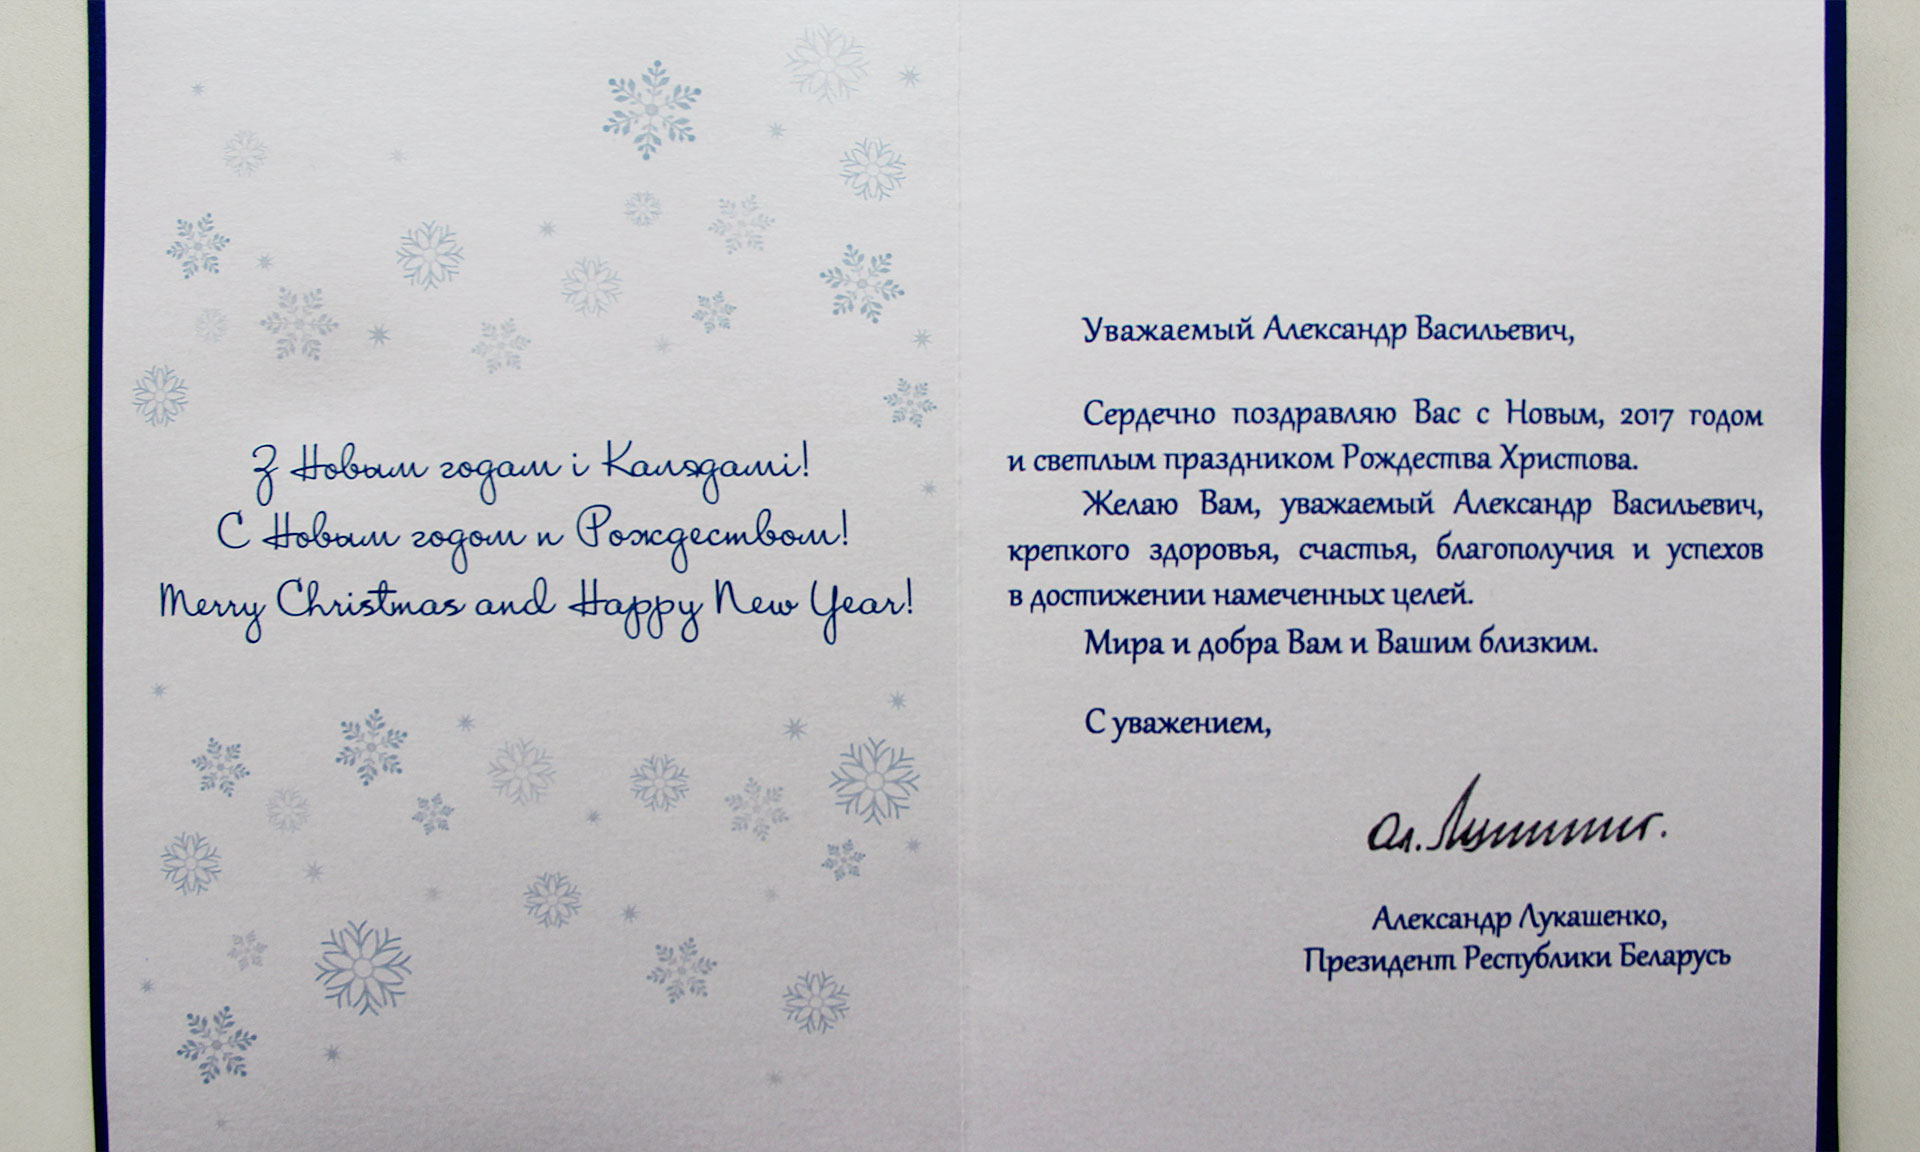 З Новым годам і Калядамі!
С Новым годом и Рождеством!
Merry Christmas and Happy New Year!
Уважаемый Александр Васильевич,
Сердечно поздравляю Вас с Новым, 2017 годом
и светлым праздником Рождества Христова.
Желаю Вам, уважаемый Александр Васильевич,
крепкого здоровья, счастья, благополучия и успехов
в достижении намеченных целей.
Мира и добра Вам и Вашим близким.
С уважением,
Александр Лукашенко,
Президент Республики Беларусь